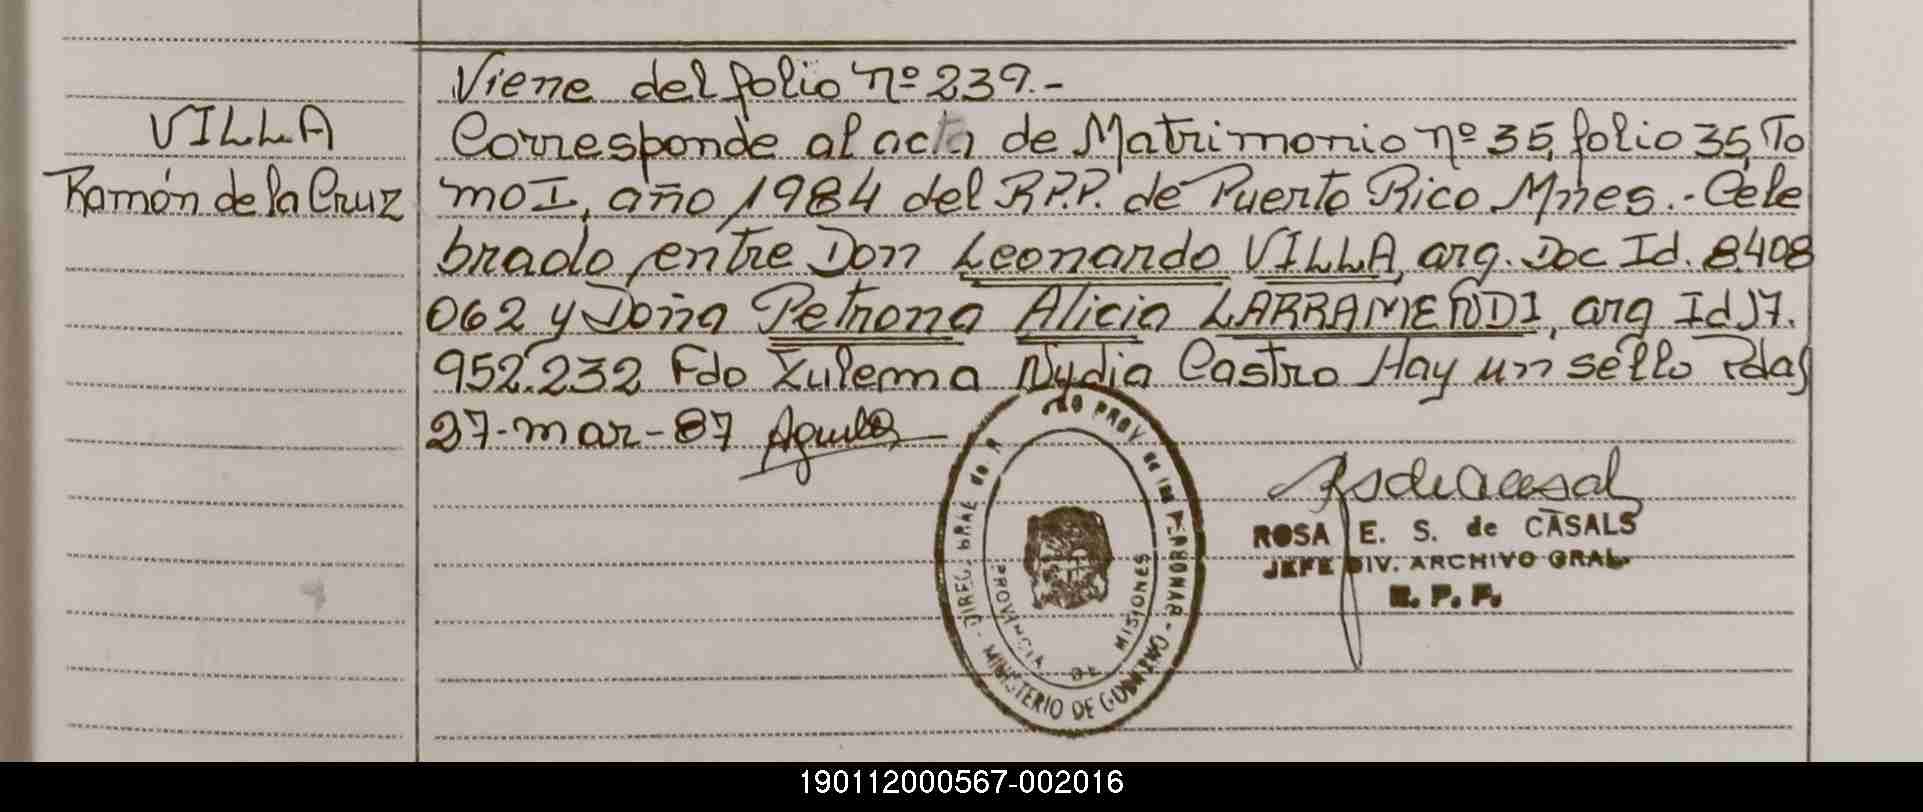 Viene del folio nº 239.-
VILLA
Ramón de la Cruz
Corresponde al acta de Matrimonio nº 35, folio 35, To
mo I, año 1984 del R.P.P. de Puerto Rico Mnes.- Cele
brado, entre Don Leonardo VILLA, arg. Doc Id. 8.408
062 y Doña Petrona Alicia LARRAMENDI, arg Id 17.
952.232 Fdo Zulema Nydia Castro Hay un sello Pdas
27-mar-87
DIREC. GRAL de R PROV de las PERSONAS - MINISTERIO DE GOBIERNO -
PROVINCIA DE MISIONES
ROSA E. S. de CASALS
JEFE DIV. ARCHIVO GRAL.
R. P. P.
190112000567-002016